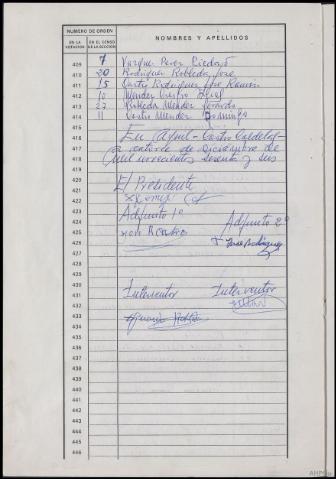 NUMERO DE ORDEN
NOMBRES Y APELLIDOS
EN LA VOTACION
EN EL CENSO DE LA SECCION
409 7 Vazquez Perez
410 20 Rodriguez Robleda Jose
411 15 Castro Rodriguez Jose Ramon
412 10 Mendez Castro
413 27 Robleda Mendez Gerardo
414 11 Castro Mendez Domingo
415
416 En Castro Caldelas
417 catorce de Diciembre de
418 mil novecientos sesenta y seis
419
420
421 El Presidente
422
423 Adjunto 1º
424 Adjunto 2º
425
426 Jose Rodriguez
427
428
429
430
431 Interventor Interventor
432
433
434
435
436
437
438
439
440
441
442
443
444
445
446